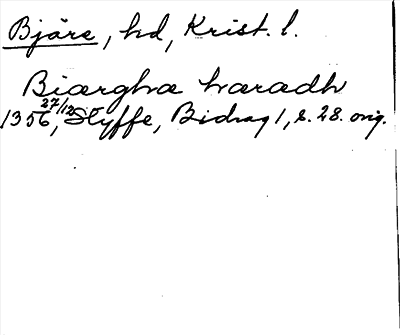 Bjäre, hd, Krist. l.
Biærghæ hæradh
1356 27/12, Styffe, Bidrag 1, s. 28. orig.